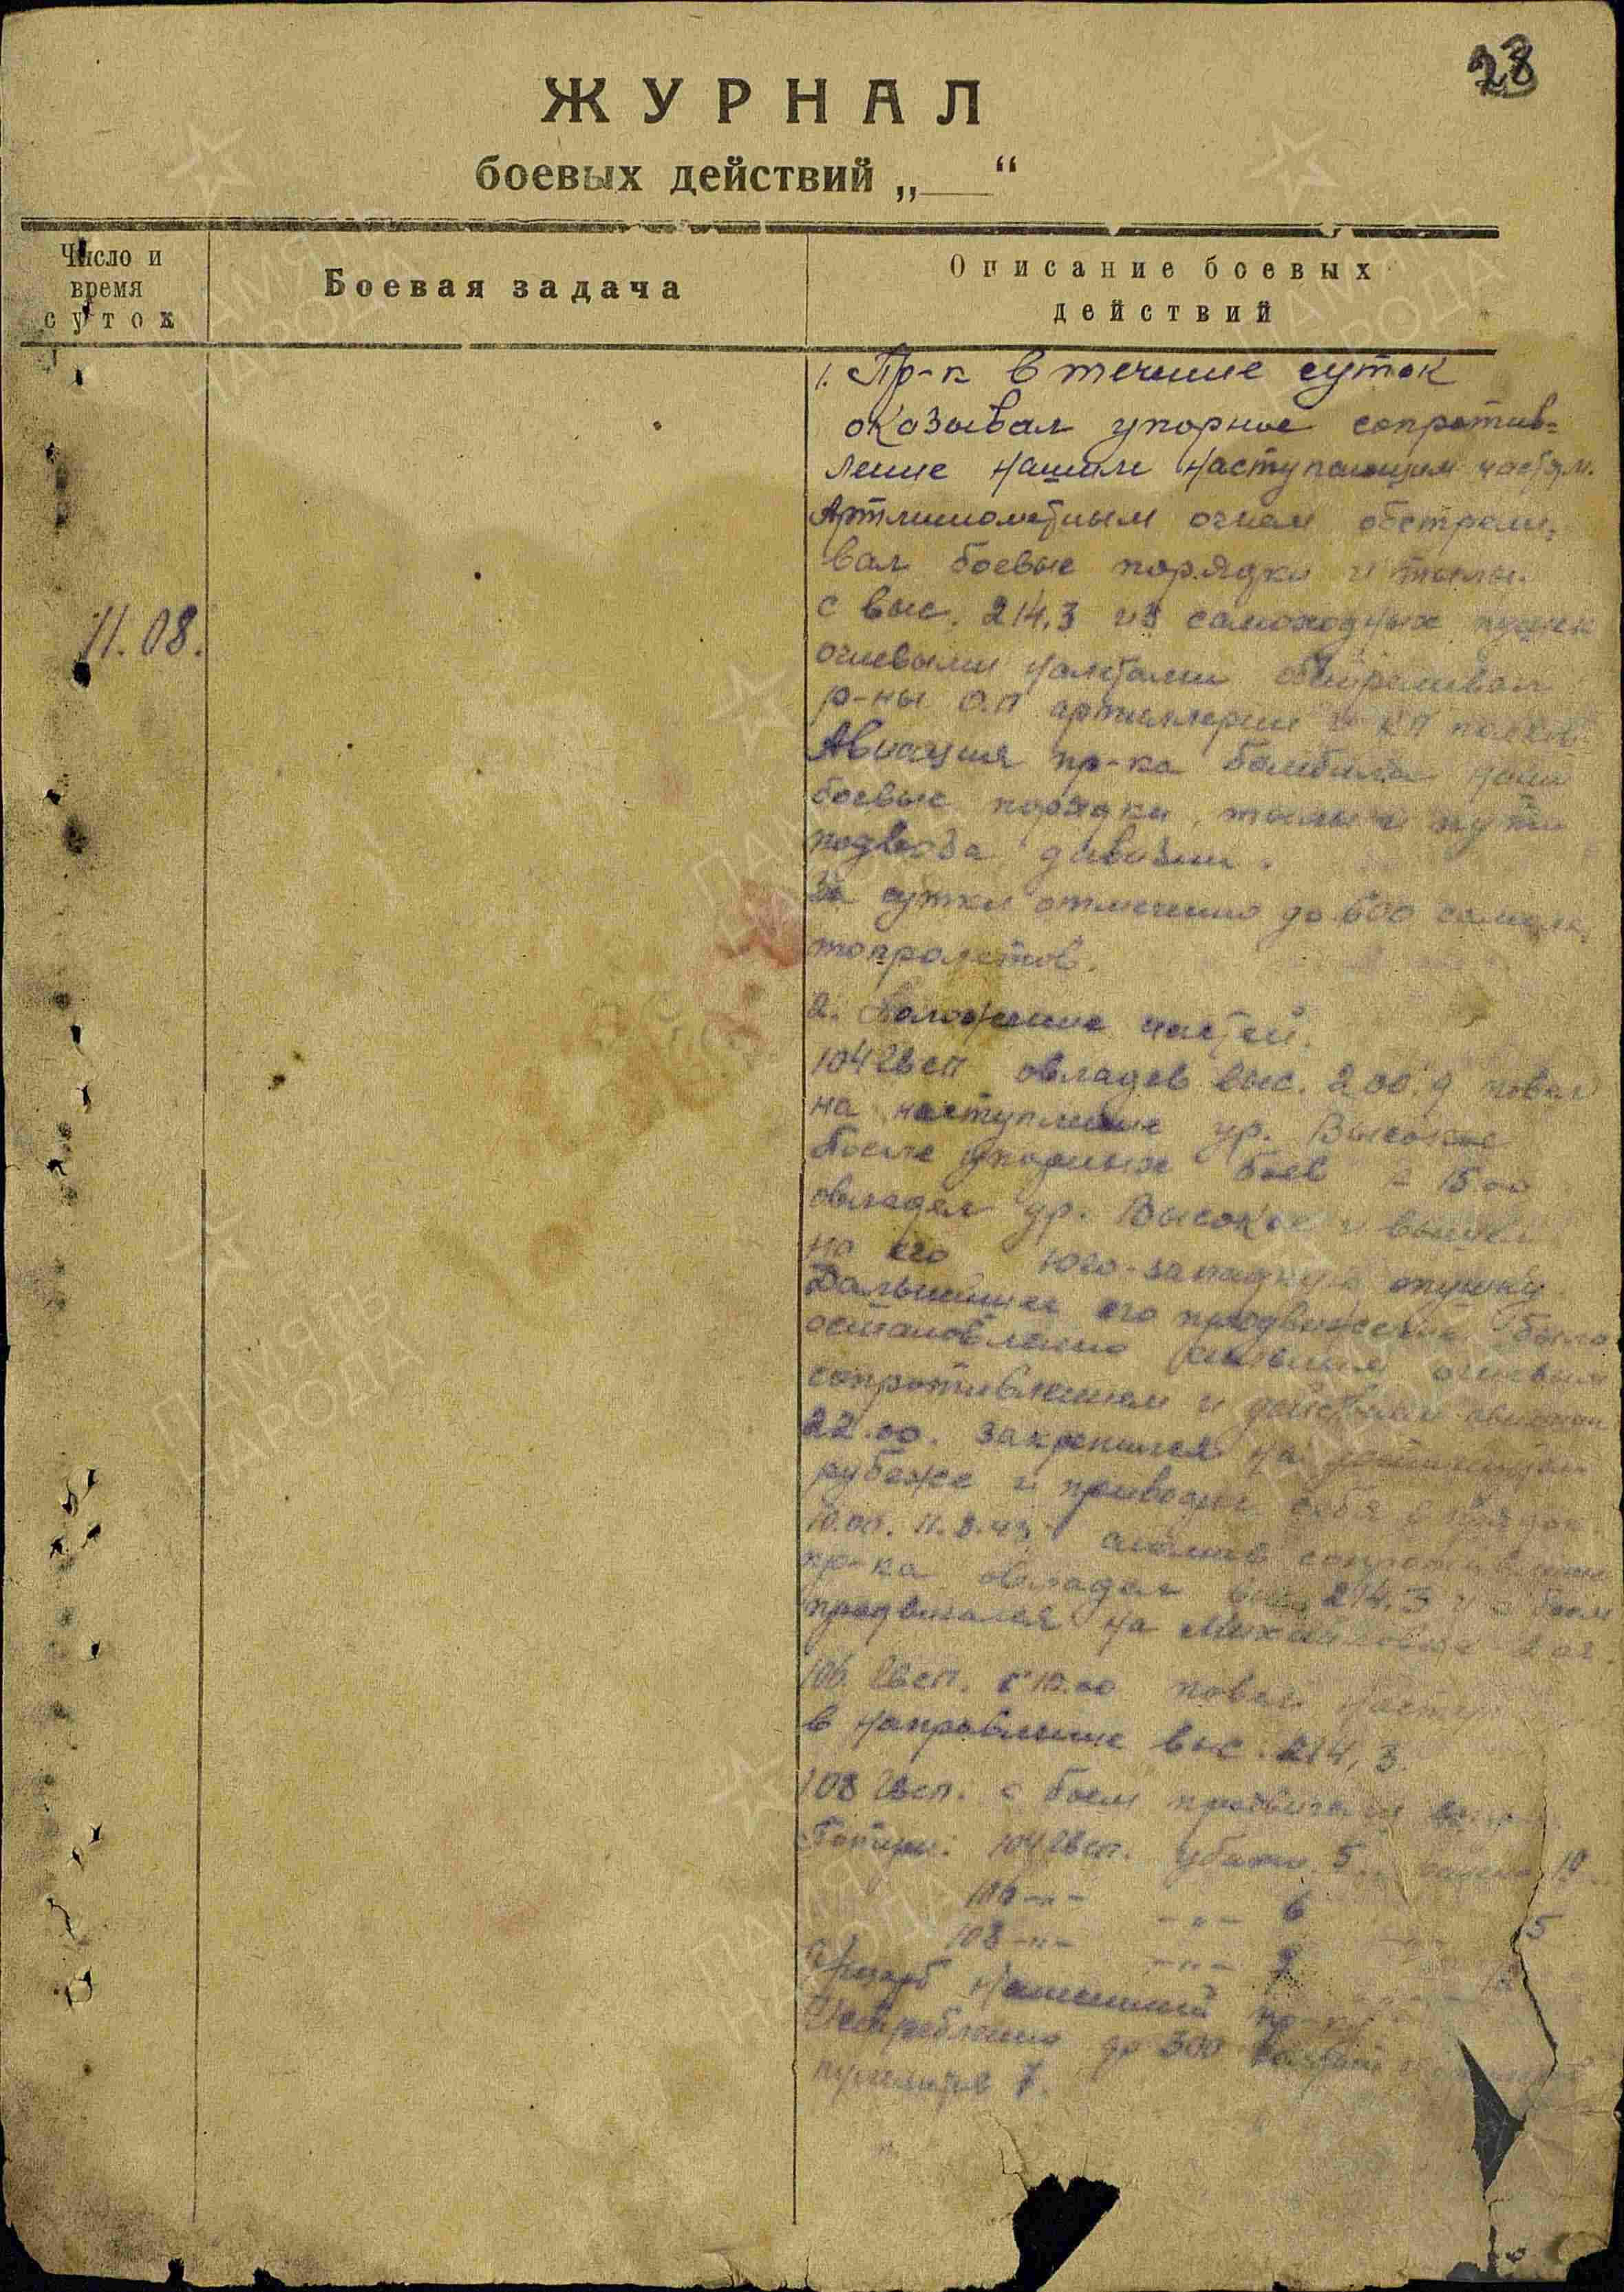 23
ЖУРНАЛ
боевых действий „___“
Число и
время
суток
Боевая задача
Описание боевых
действий
11.08.
1. Пр-к в течение суток
оказывал упорное сопротив=
ление нашим наступающим частям.
Артминометным огнем обстрели-
вал боевые порядки и тылы.
С выс. 214,3 из самоходных пушек
огневыми налетами обстреливал
р-ны О.П артиллерии и КП полков.
Авиация пр-ка бомбила наши
боевые порядки, тылы и пути
подвоза дивизии.
За сутки отмечено до 600 самоле-
топролетов.
2. Положение частей.
104 Гвсп овладев выс. 200.9 повел
на наступление ур. Высокое
После упорных боев к 15.00
овладел ур. Высокое и вышел
на его юго-западную опушку
Дальнейшее его продвижение было
остановлено сильным огневым
сопротивлением и действием авиации
22.00. закрепился на достигнутом
рубеже и приводил себя в порядок.
10.00. 11.8.43 сломив сопротивление
пр-ка овладел выс. 214.3 и с боем
продвигался на
106 Гвсп. с 10.00 повел наступ
в направление выс. 214,3.
108 Гвсп. с боем продвигался
Потери: 104 Гвсп. убито 5 ранено 10
106 -"- -"- 6 5
108 -"- -"-
Ущерб нанесенный пр-ку
Истреблено до 300
пулеметов 7.